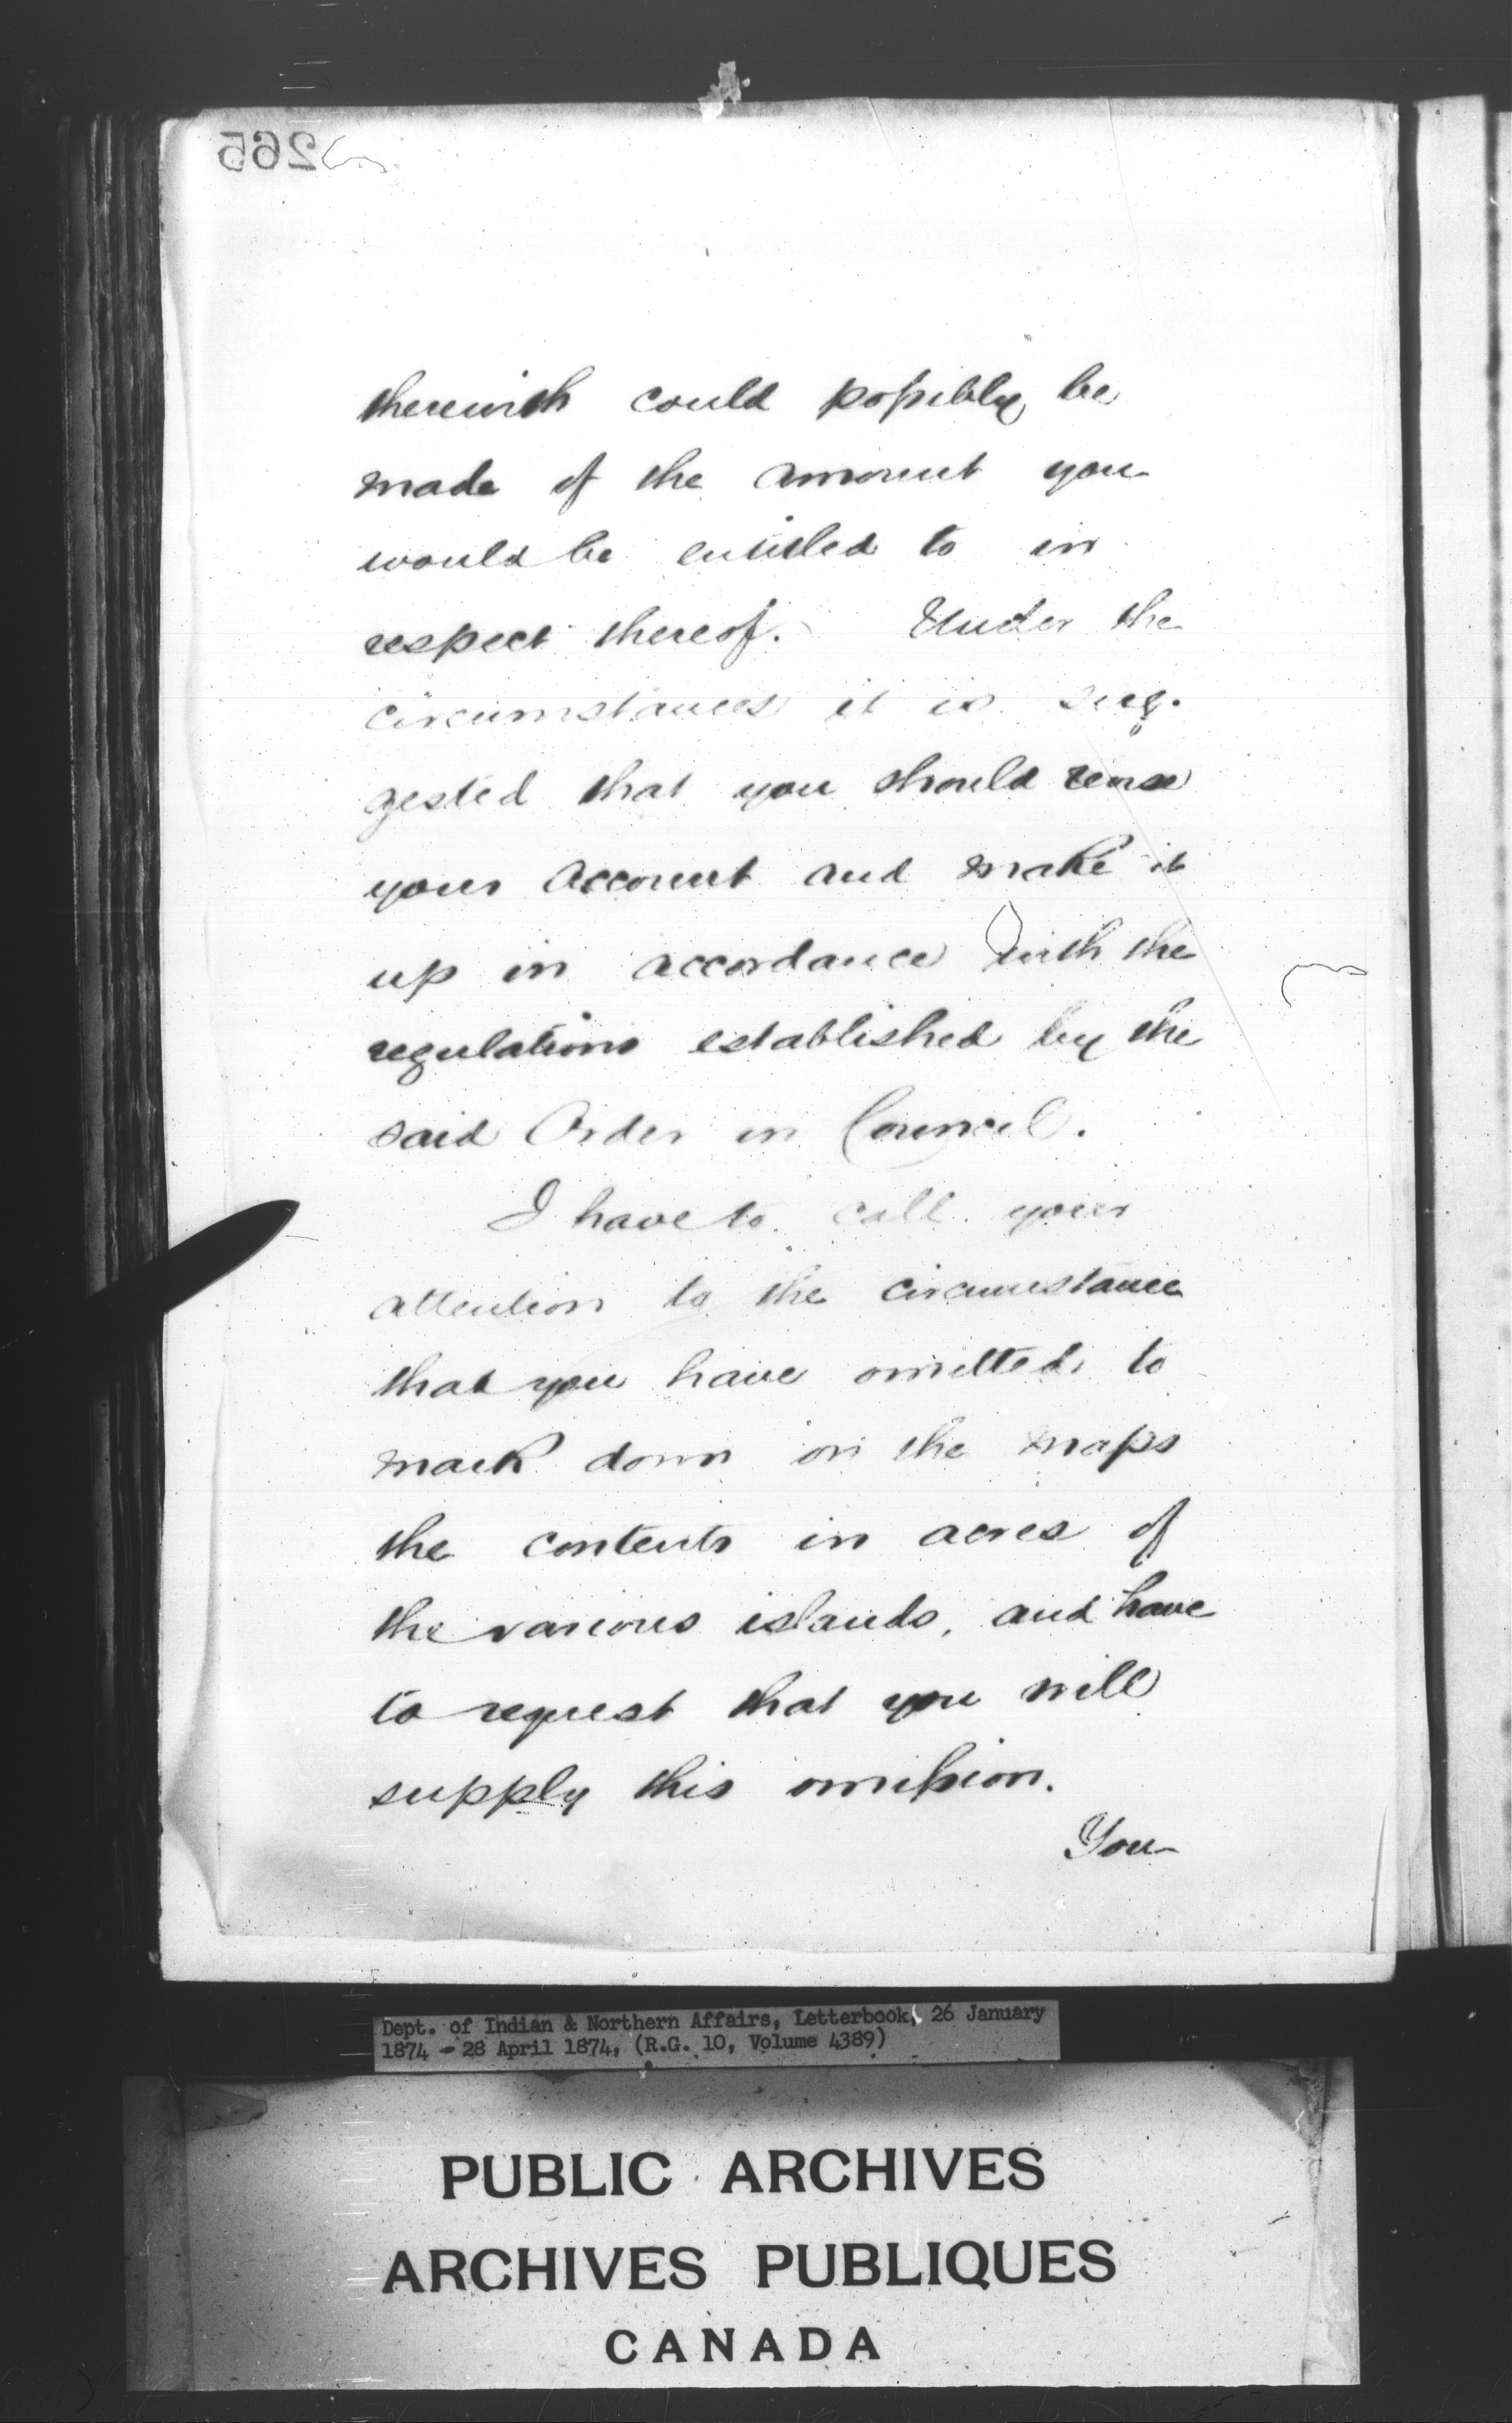 265
therewith could possibly be
made of the amount you
would be entitled to in
respect thereof. Under the
circumstances it is sug-
gested that you should
your account and make it
up in accordance with the
regulations established by the
said Order in Council.
I have to call your
attention to the circumstance
that you have omitted to
mark down on the maps
the contents in acres of
the various islands, and have
to request that you will
supply this omission.
You
Dept. of Indian & Northern Affairs, Letterbook, 26 January
1874 - 28 April 1874, (R.G. 10, Volume 4389)
PUBLIC ARCHIVES
ARCHIVES PUBLIQUES
CANADA